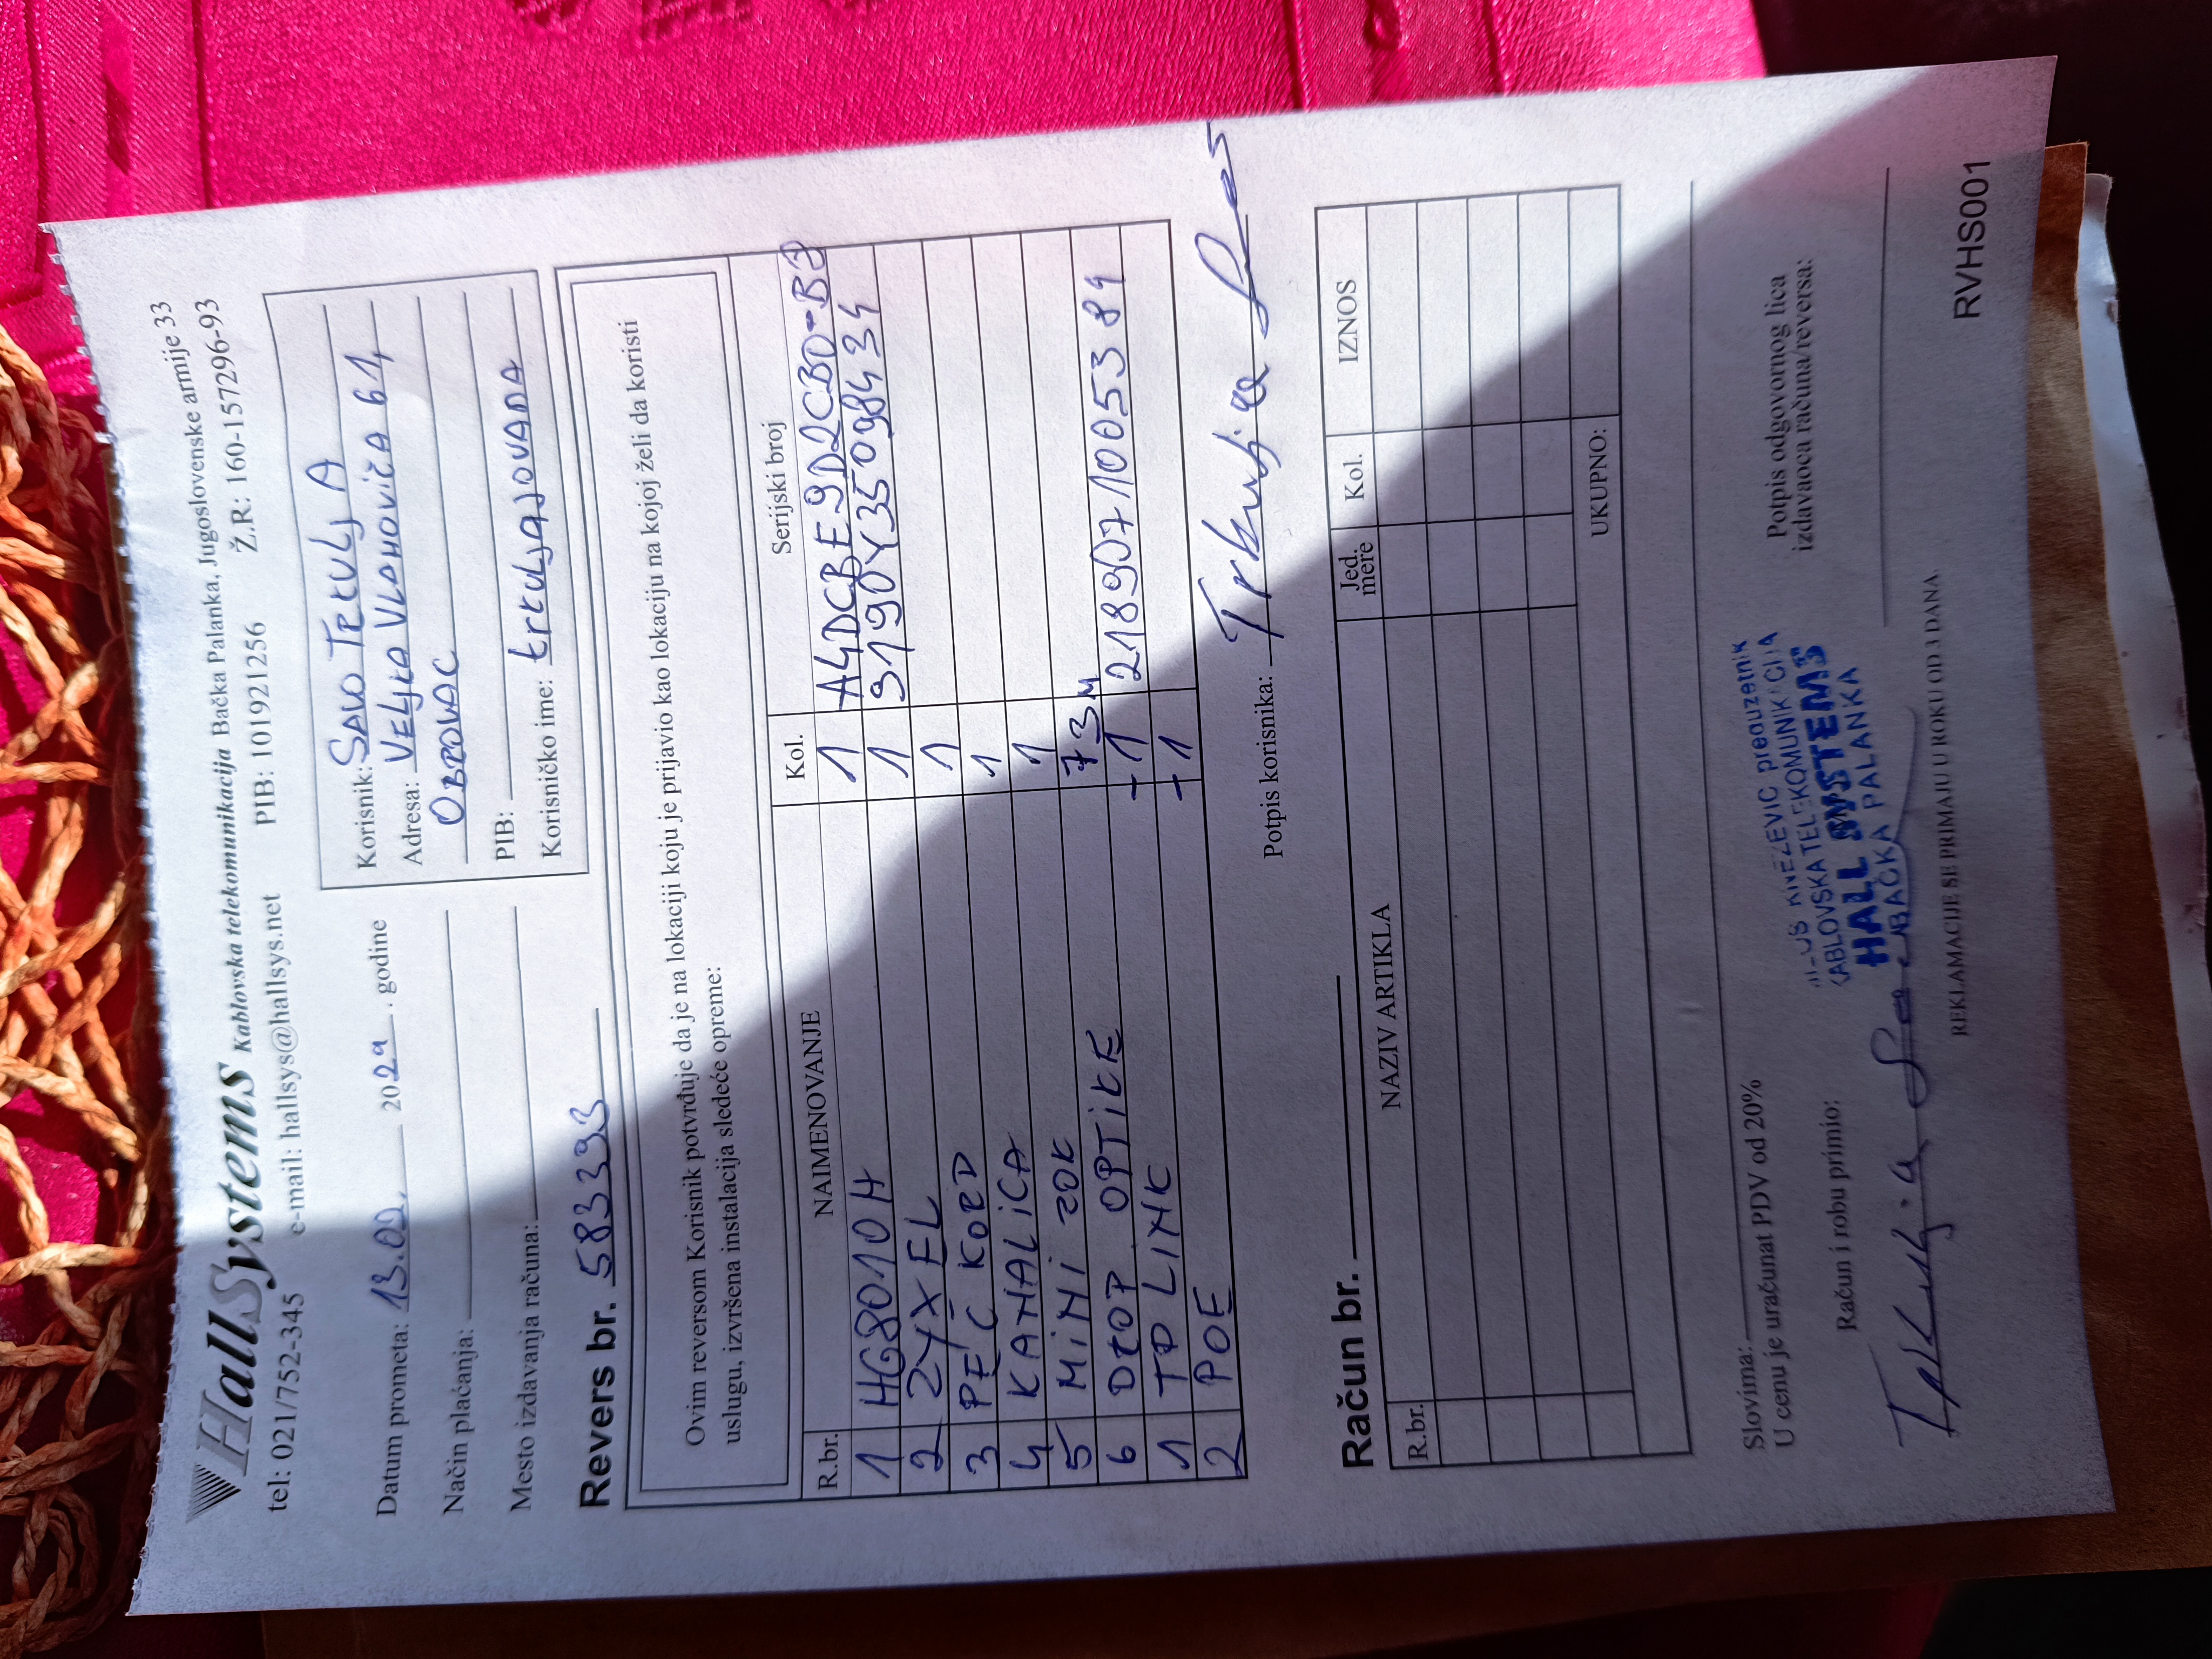 HallSystems Kablovska telekomunikacija Bačka Palanka, Jugoslovenske armije 33
tel: 021/752-345 e-mail: hallsys@hallsys.net PIB: 101921256 Ž.R: 160-157296-93
Datum prometa: 13.02. 2024. godine
Način plaćanja:
Mesto izdavanja računa:
Korisnik: SAVO TRKULJA
Adresa: VELJKA VLAHOVIĆA 61,
OBROVAC
PIB:
Korisničko ime: trkuljajovana
Revers br. 583393
Ovim reversom Korisnik potvrđuje da je na lokaciji koju je prijavio kao lokaciju na kojoj želi da koristi
uslugu, izvršena instalacija sledeće opreme:
R.br. NAIMENOVANJE Kol. Serijski broj
1 HG8010H 1 A4DCBE9D2CB0-B3
2 ZYXEL 1 S190Y35098434
3 PEČ KORD 1
4 KANALICA 1
5 MINI ZOK 1
6 DROP OPTIKE 73M
1 TP LINK -1 2189071005384
2 POE -1
Potpis korisnika: Trkulja
Račun br.
R.br. NAZIV ARTIKLA Jed. mere Kol. IZNOS
UKUPNO:
Slovima:
U cenu je uračunat PDV od 20%
Račun i robu primio:
Trkulja
KNEŽEVIĆ preduzetnik
KABLOVSKA TELEKOMUNIKACIJA
HALL SYSTEMS
BAČKA PALANKA
Potpis odgovornog lica
izdavaoca računa/reversa:
REKLAMACIJE SE PRIMAJU U ROKU OD 3 DANA
RVHS001